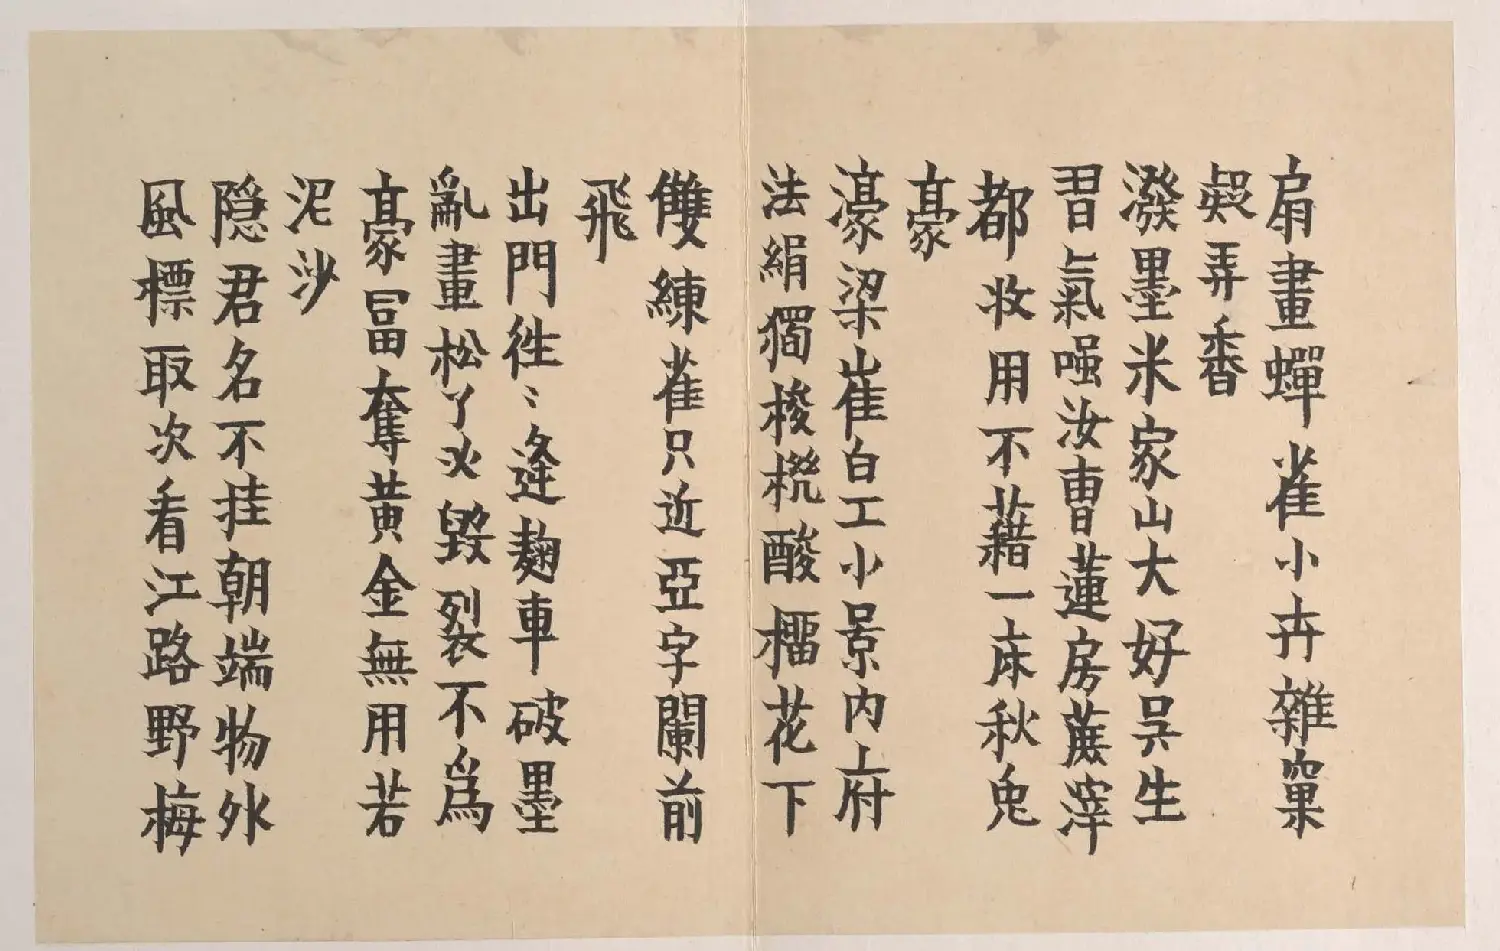 扇畫蟬雀小卉雜窠
疑弄香
潑墨米家山大好吳生
習氣嗤汝曹蓮房蔗滓
都收用不藉一床秋兔
豪
濠梁崔白工小景內府
法絹獨梭機酸榴花下
雙練雀只近亞字闌前
飛
出門往〻逢麹車破墨
亂畫松丫叉毀裂不爲
豪冨奪黃金無用若
泥沙
隐君名不挂朝端物外
風標取次看江路野梅